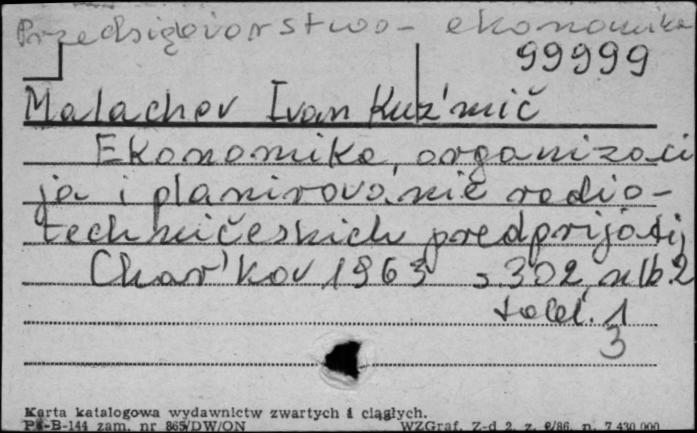 Przedsiębiorstwo - ekonomika
99999
Malachov Ivan Kuz'mič
Ekonomika, organizaci
ja i planirovanie radio-
techničeskich predprijatij
Char'kov 1963 s. 302, nlb. 2
tabl. 1
3
Karta katalogowa wydawnictw zwartych i ciągłych.
Pu-B-144 zam. nr 865/DW/ON WZGraf. Z-d 2, z. 2/86, n. 7 430 000